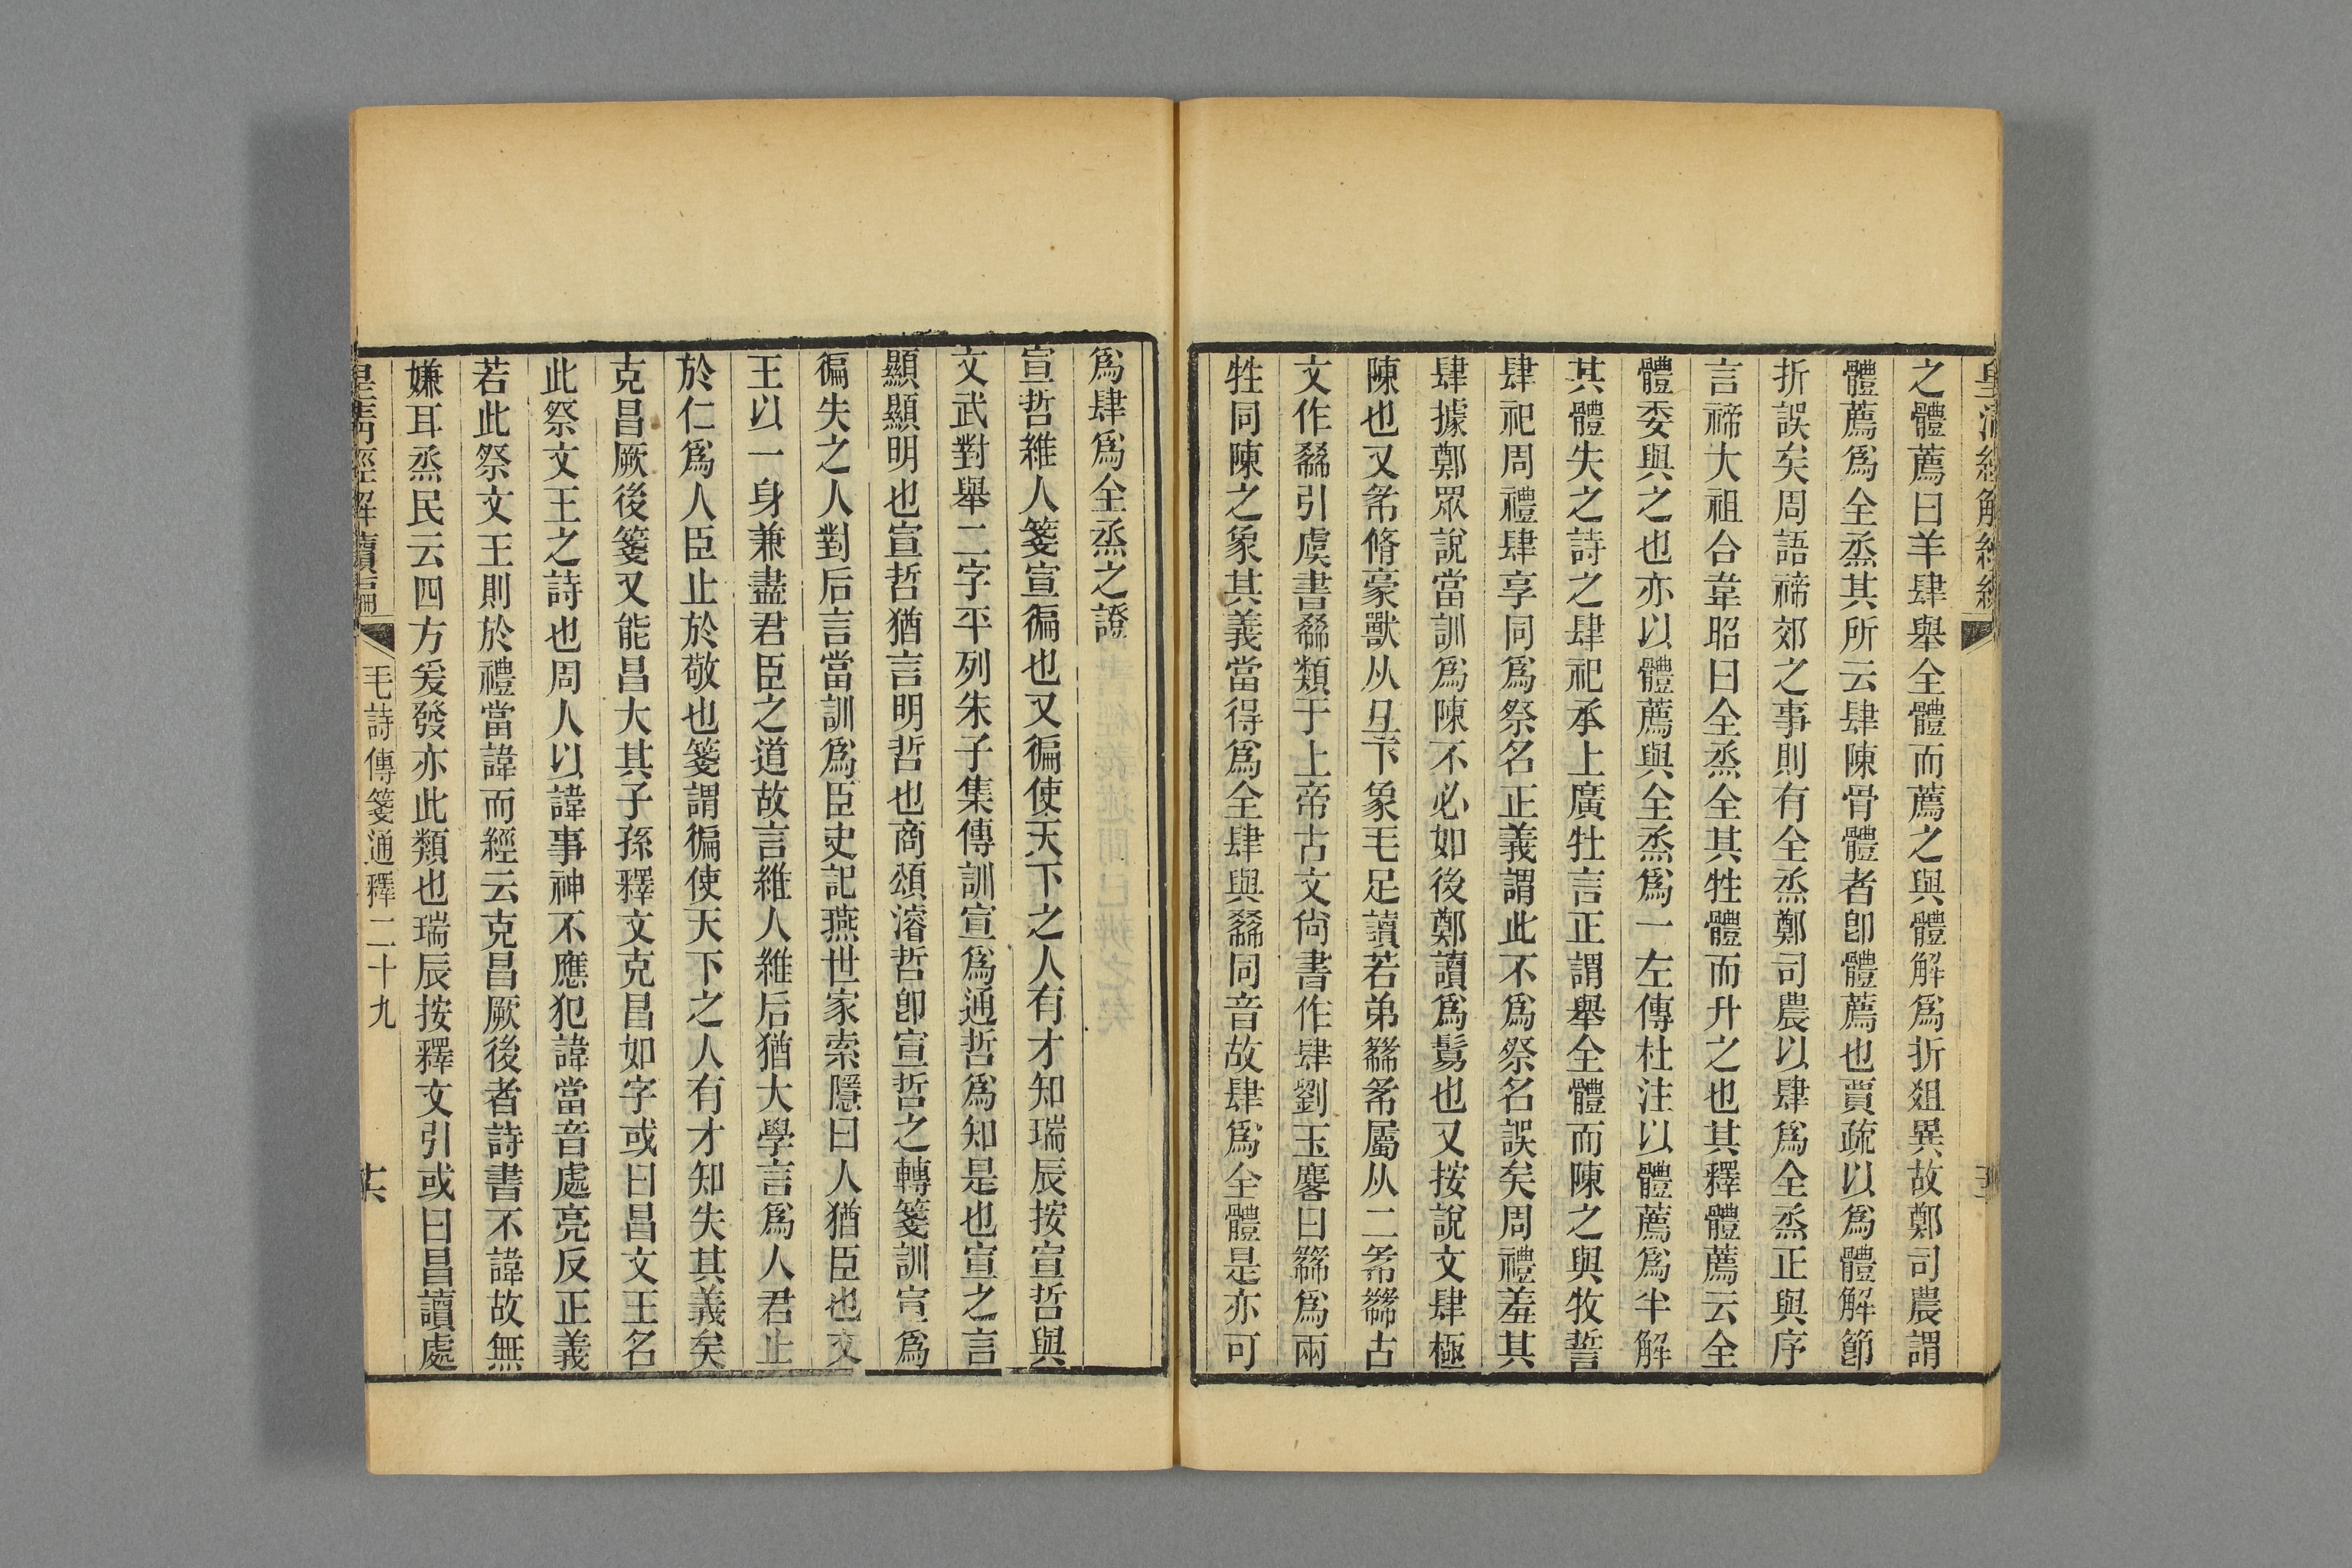 之體薦曰羊肆舉全體而薦之與體解爲折俎異故鄭司農謂
體薦爲全烝其所云肆陳骨體者卽體薦也賈疏以爲體解節
折誤矣周語禘郊之事則有全烝鄭司農以肆爲全烝正與序
言禘大祖合韋昭曰全烝全其牲體而升之也其釋體薦云全
體委與之也亦以體薦與全烝爲一左傳杜注以體薦爲半解
其體失之詩之肆祀承上廣牡言正謂舉全體而陳之與牧誓
肆祀周禮肆享同爲祭名正義謂此不爲祭名誤矣周禮羞其
肆據鄭眾說當訓爲陳不必如後鄭讀爲鬄也又按說文肆極
陳也又㣇脩豪獸从彑下象毛足讀若弟𢑱㣇屬从二㣇𢑱古
文作𢑱引虞書𢑱類于上帝古文尙書作肆劉玉麐曰𢑱爲兩
牲同陳之象其義當得爲全肆與𢑱同音故肆爲全體是亦可
爲肆爲全烝之證
宣哲維人箋宣徧也又徧使天下之人有才知瑞辰按宣哲與
文武對舉二字平列朱子集傳訓宣爲通哲爲知是也宣之言
顯顯明也宣哲猶言明哲也商頌濬哲卽宣哲之轉箋訓宣爲
徧失之人對后言當訓爲臣史記燕世家索隱曰人猶臣也文
王以一身兼盡君臣之道故言維人維后猶大學言爲人君止
於仁爲人臣止於敬也箋謂徧使天下之人有才知失其義矣
克昌厥後箋又能昌大其子孫釋文克昌如字或曰昌文王名
此祭文王之詩也周人以諱事神不應犯諱當音處亮反正義
若此祭文王則於禮當諱而經云克昌厥後者詩書不諱故無
嫌耳烝民云四方爰發亦此類也瑞辰按釋文引或曰昌讀處
皇淸經解續編
毛詩傳箋通釋二十九